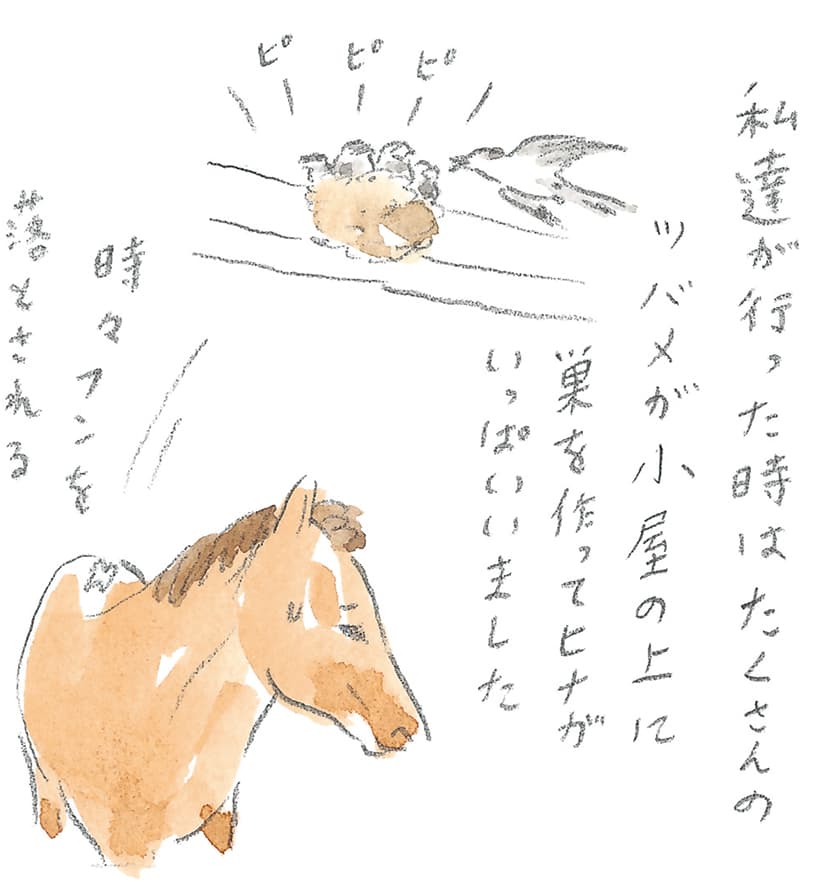 私達が行った時はたくさんの
ツバメが小屋の上に
巣を作ってヒナが
いっぱいいました
ピ
ピ
ピ
時々フンを
落とされる